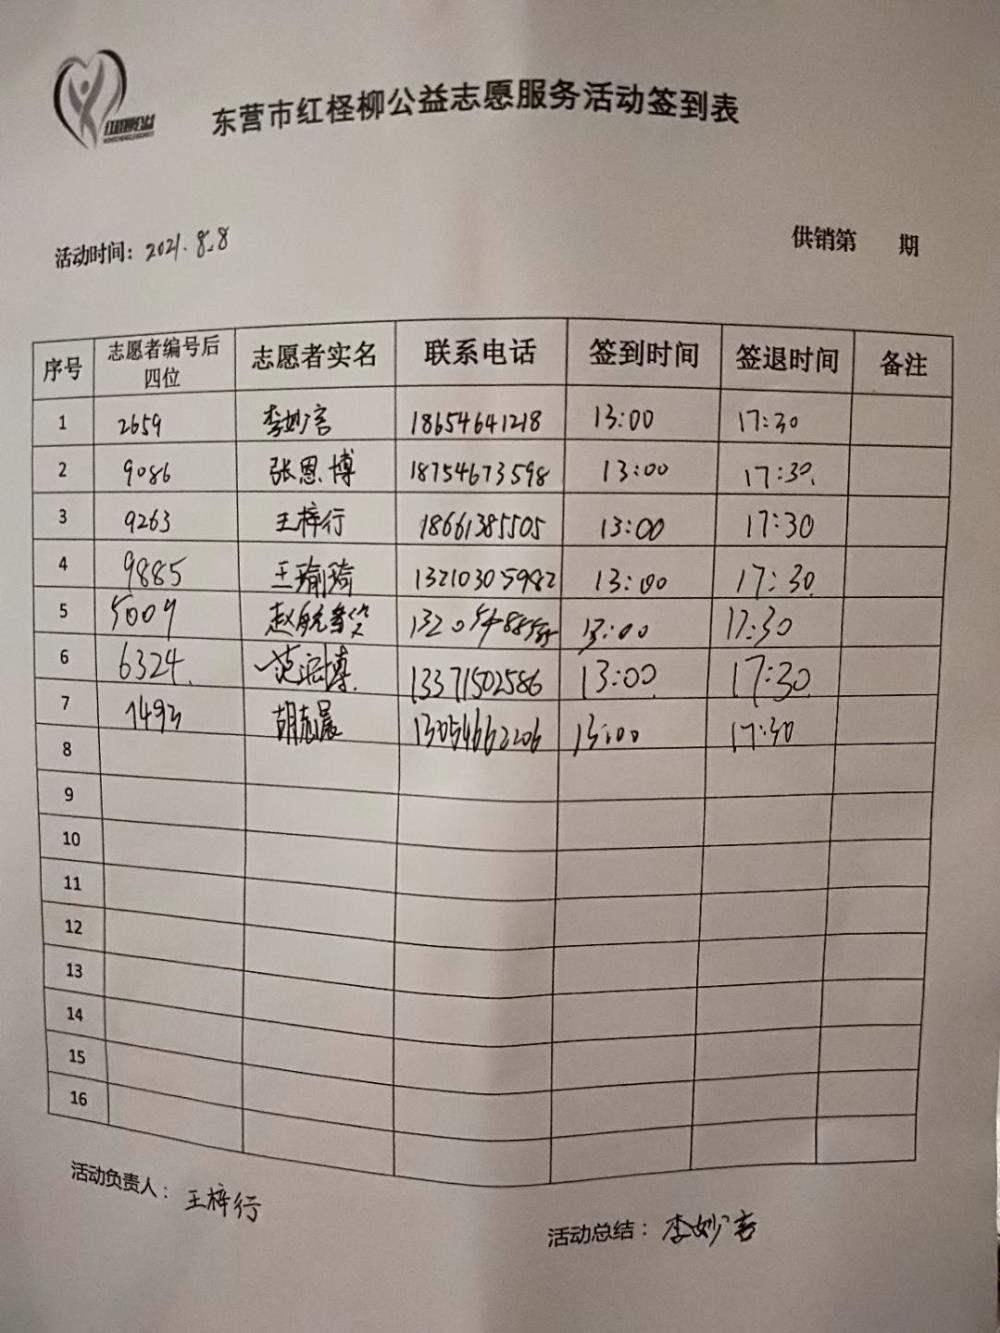 东营市红柽柳公益志愿服务活动签到表
活动时间：2021.8.8
供销第 期
序号 志愿者编号后四位 志愿者实名 联系电话 签到时间 签退时间 备注
1 2659 李妙言 18654641218 13:00 17:30
2 9086 张恩博 18754673598 13:00 17:30
3 9263 王梓行 18661385505 13:00 17:30
4 9885 王瑜琦 13210305982 13:00 17:30
5 5009 13:00 17:30
6 6324 13371502586 13:00 17:30
7 1493 胡志晨 13054662206 13:00 17:30
8
9
10
11
12
13
14
15
16
活动负责人：王梓行
活动总结：李妙言